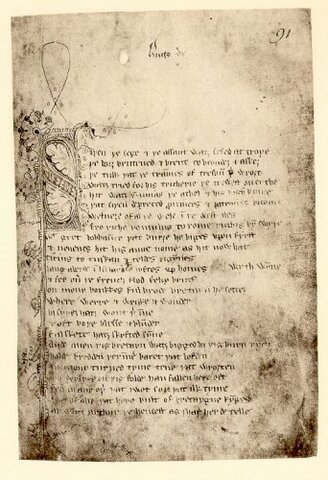 91
Siþen þe sege & þe assaut watz sesed at troye
þe borȝ brittened & brent to brondeȝ & askez
þe tulk þat þe trammes of tresoun þer wroȝt
watz tried for his tricherie þe trewest on erthe
hit watz ennias þe athel & his highe kynde
þat siþen depreced prouinces & patrounes bicome
welneȝe of al þe wele in þe west iles
fro riche romulus to rome ricchis hym swyþe
gret bobbaunce þat burȝe he biges vpon fyrst
& neuenes hit his aune nome as hit now hat
ticius to tuskan & teldes bigynnes
langaberde in lumbardie lyftes vp homes wyth wynne
& fer ouer þe french flod felix brutus
on mony bonkkes ful brode bretayn he settez
where werre & wrake & wonder
bi syþez hatz wont þer inne
& oft boþe blysse & blunder
ful skete hatz skyfted synne
Ande quen þis bretayn watz bigged bi þis burn rych
bolde bredden þer inne baret þat lofden
in mony turned tyme tene þat wroȝten
mo ferlyes on þis folde han fallen here oft
þen in any oþer þat I wot syn þat ilk tyme
bot of alle þat here bult of bretaygne kynges
ay watz arthur þe hendest as I haf herde telle